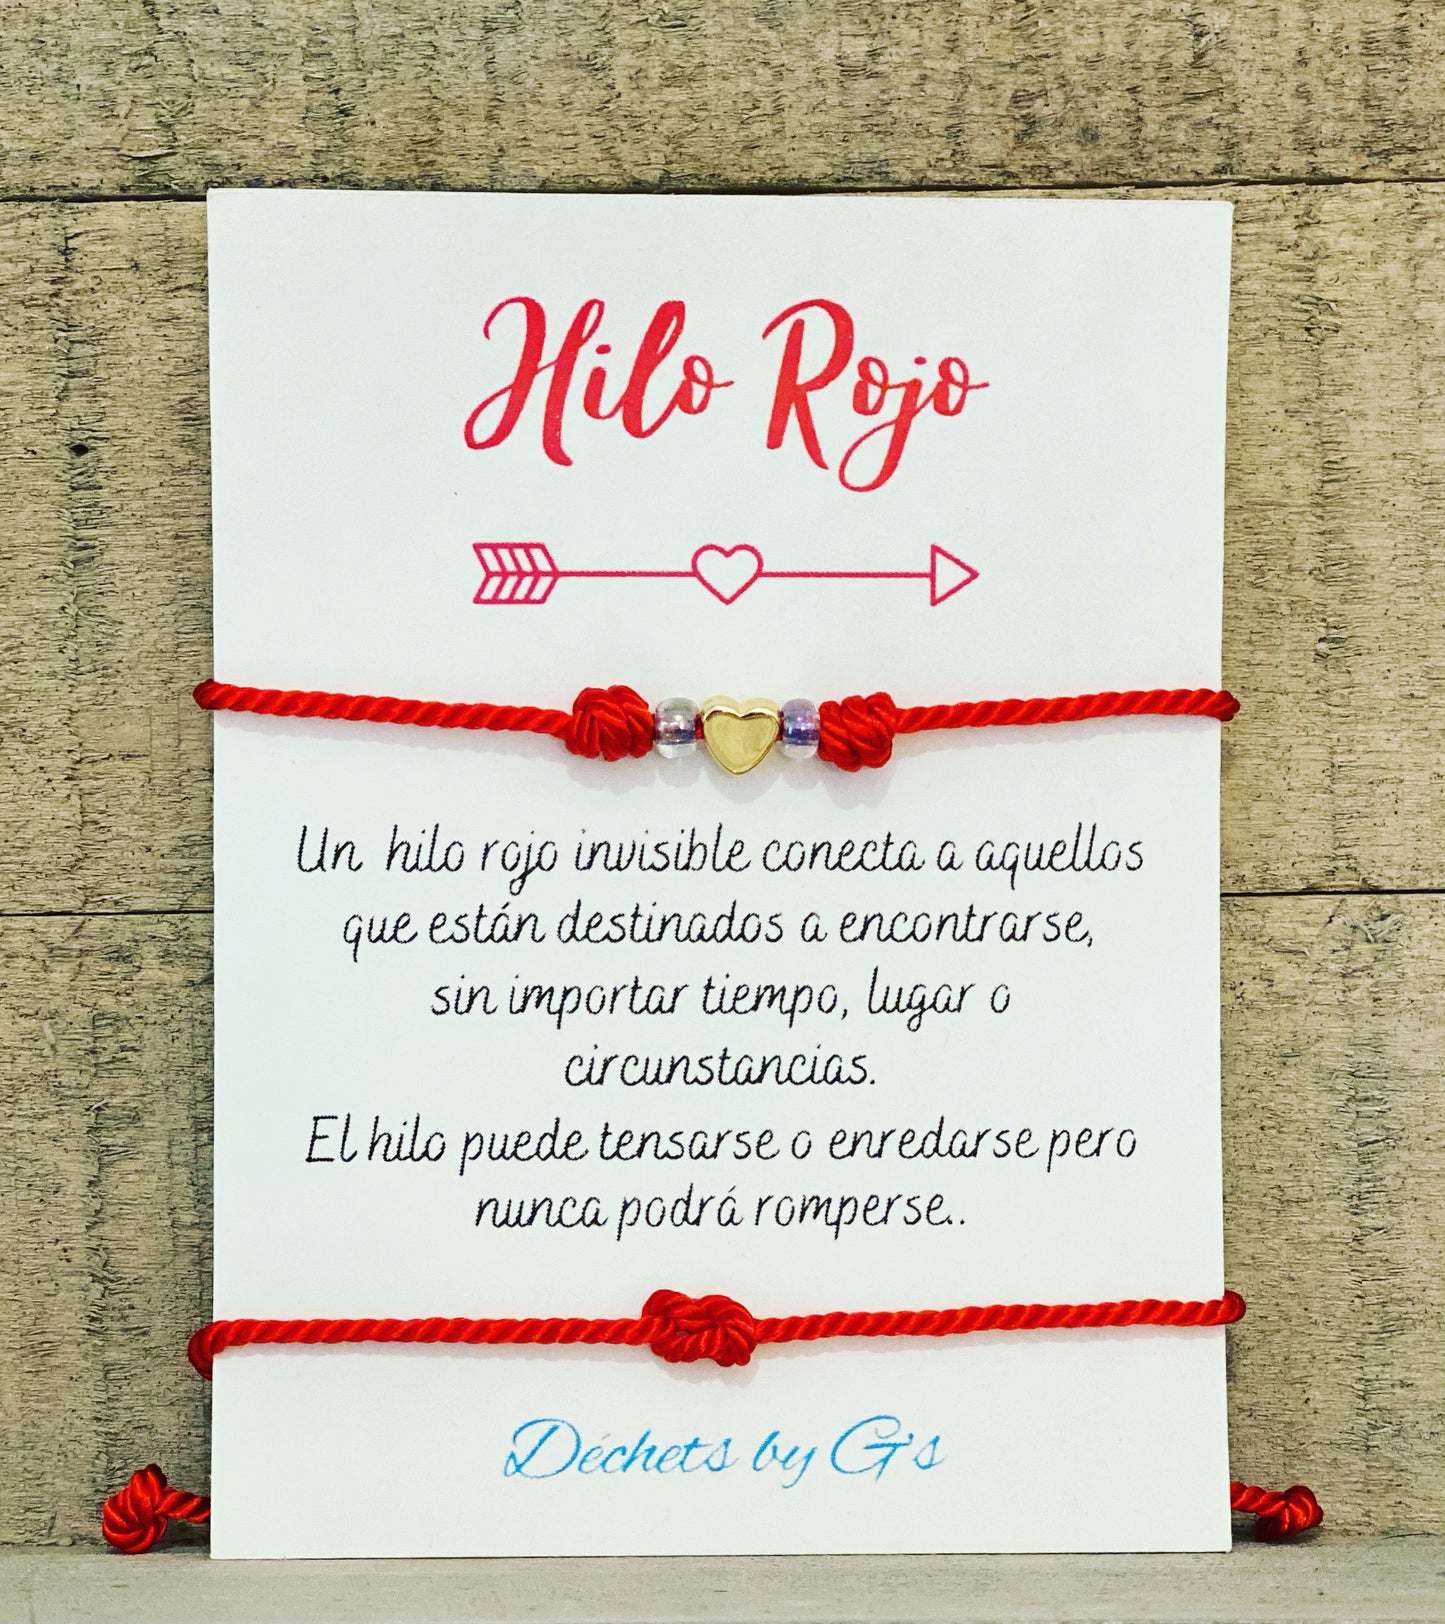 Hilo Rojo
Un hilo rojo invisible conecta a aquellos
que están destinados a encontrarse,
sin importar tiempo, lugar o
circunstancias.
El hilo puede tensarse o enredarse pero
nunca podrá romperse..
Déchets by G's